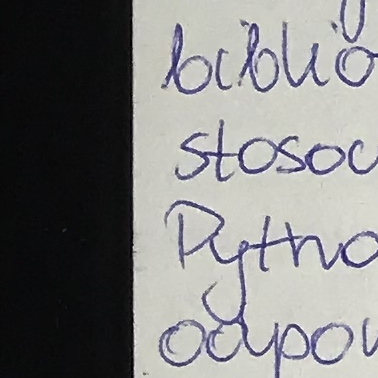 biblio
stosow
Pytho
odpow